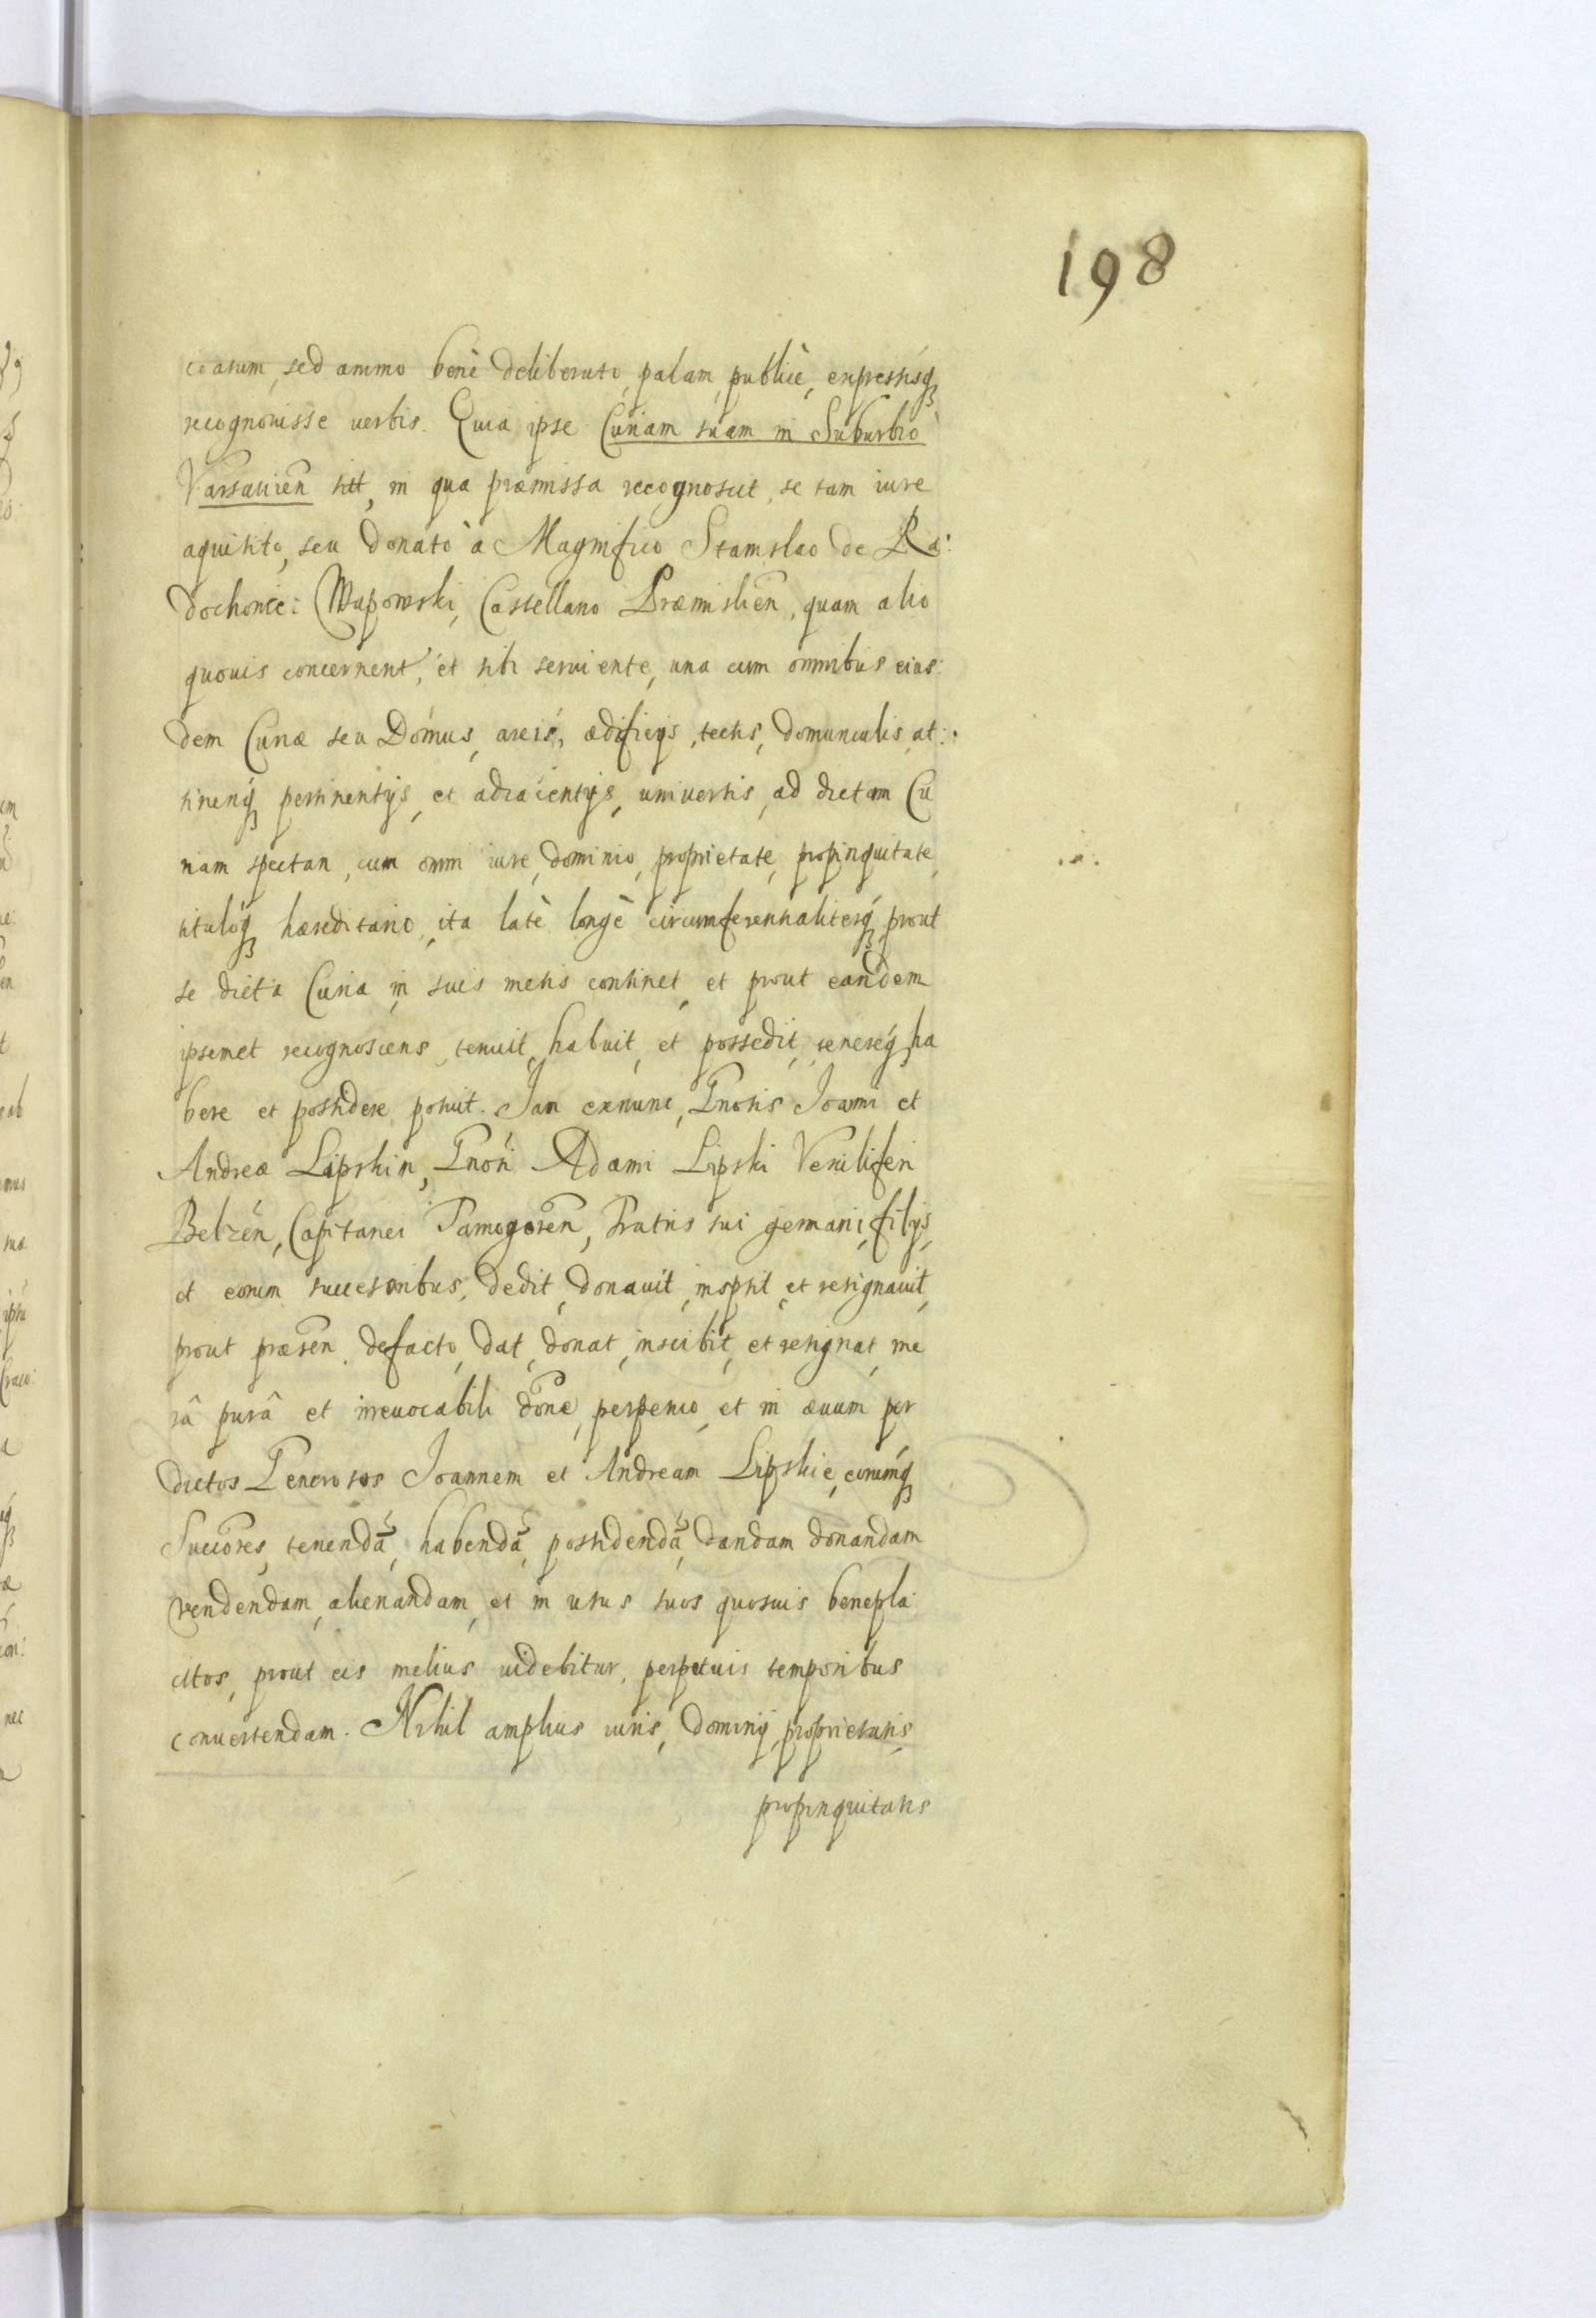 198
coarum, sed animo benè deliberato, palam, publicè, expressisq́
recognouisse uerbis. Quia ipse Curiam suam in Suburbio
Varsauien̄ sit, in qua præmissa recognoscit, se tam iure
aquisito, seu donato à Magnifico Stanislao de Ra:
dochonice: Wapowski, Castellano Præmislien̄, quam alio
quouis concernent, et sibi seruiente, una cum omnibus eius:
dem Curiæ seu Domus, areis, ædificijs, tectis, domunculis, at:
tinenq́ pertinentijs, et adiacentijs, uniuersis, ad dictam Cu
riam spectan, cum omni iure, dominio, proprietate, propinquitate,
tituloq́ hæreditario, ita latè longè circumferentialiterq́, prout
se dicta Curia in suis metis continet, et prout eandem
ipsemet recognoscens, tenuit, habuit, et possedit, tenereq́, ha
bere et possidere potuit. Iam exnunc, Gnosis Ioanni et
Andreæ Lipskim, Gnosi Adami Lipski Vexiliferi
Belzen̄, Capitanei Samogoren̄, Fratris sui germani, filijs,
et eorum succesoribus, dedit, donauit, inspsit, et resignauit,
prout præsen̄. defacto, dat, donat, inscribit, et resignat, me
râ purâ et irreuocabili done, perpetuo, et in æuum per
dictos Generosos Ioannem et Andream Lipskie, eorumq́
Succores, tenendā, habendā, possidendā, dandam donandam
vendendam, alienandam, et in usus suos quosuis benepla
citos, prout eis melius uidebitur, perpetuis temporibus
conuertendam. Nihil amplius iuris, Dominij, proprietatis,
propinquitatis